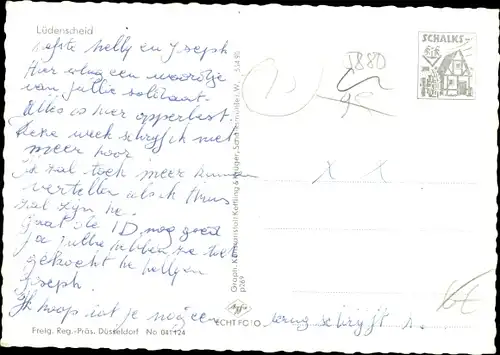 Lüdenscheid
SCHALKS-
Liefste Nelly en Joseph
Hier nog een woordje
van jullie soldaat.
Alles is hier opperbest
deze week schrijf ik niet
meer hoor
ik zal toch meer kunnen
vertellen als ik thuis
zal zijn he.
gaat de 1D nog goed
ja jullie hebben ze wel
gekocht he Nelly en
Joseph.
Ik hoop dat je nog een terug schrijft
5880
X X
Graph. Kunstanstalt Kettling & Krüger, Schalksmühle i. W.
p269
Agfa
ECHT FOTO
Freig. Reg.-Präs. Düsseldorf No 041124